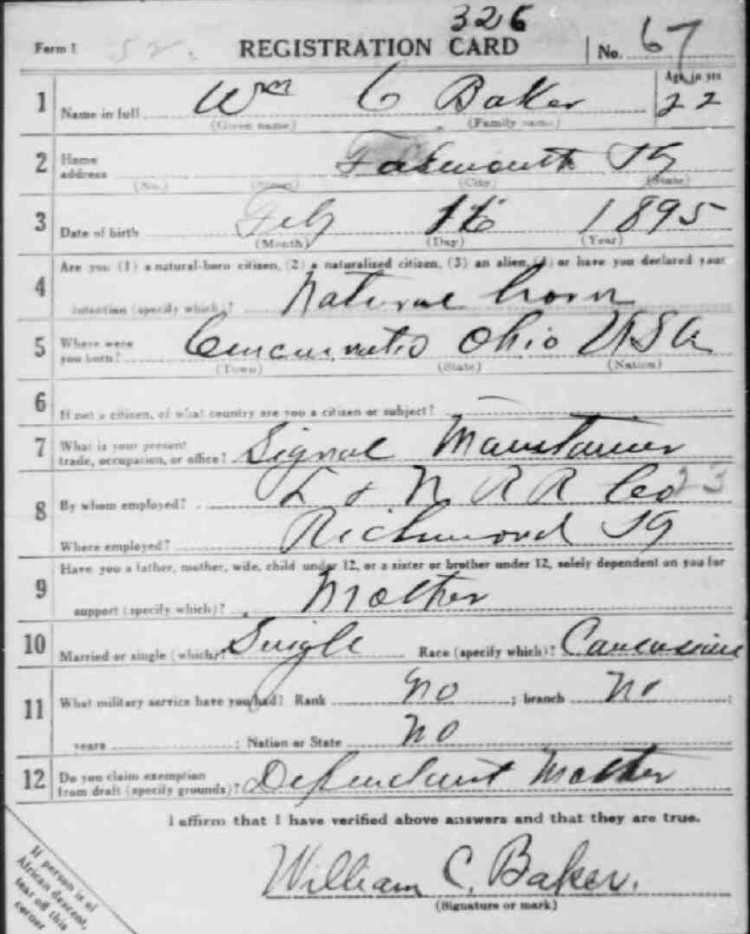 326
Form 1 52. REGISTRATION CARD No. 67
Age, in yrs
1 Name in full Wm C Baker 22
(Given name) (Family name)
2 Home address Falmouth Ky
(No.) (Street) (City) (State)
3 Date of birth Feb 16 1895
(Month) (Day) (Year)
Are you (1) a natural-born citizen, (2) a naturalized citizen, (3) an alien, (4) or have you declared your
4 intention (specify which)? Natural born
5 Where were you born? Cincinnatis Ohio USA
(Town) (State) (Nation)
6 If not a citizen, of what country are you a citizen or subject?
7 What is your present trade, occupation, or office? Signal Maintainer
8 By whom employed? L & N R R Co 23
Where employed? Richmond Ky
Have you a father, mother, wife, child under 12, or a sister or brother under 12, solely dependent on you for
9 support (specify which)? Mother
10 Married or single (which)? Single Race (specify which)? Caucasian
11 What military service have you had? Rank no ; branch no ;
years ; Nation or State no
12 Do you claim exemption from draft (specify grounds)? Dependant Mother
I affirm that I have verified above answers and that they are true.
William C. Baker.
(Signature or mark)
If person is of
African descent,
tear off this
corner